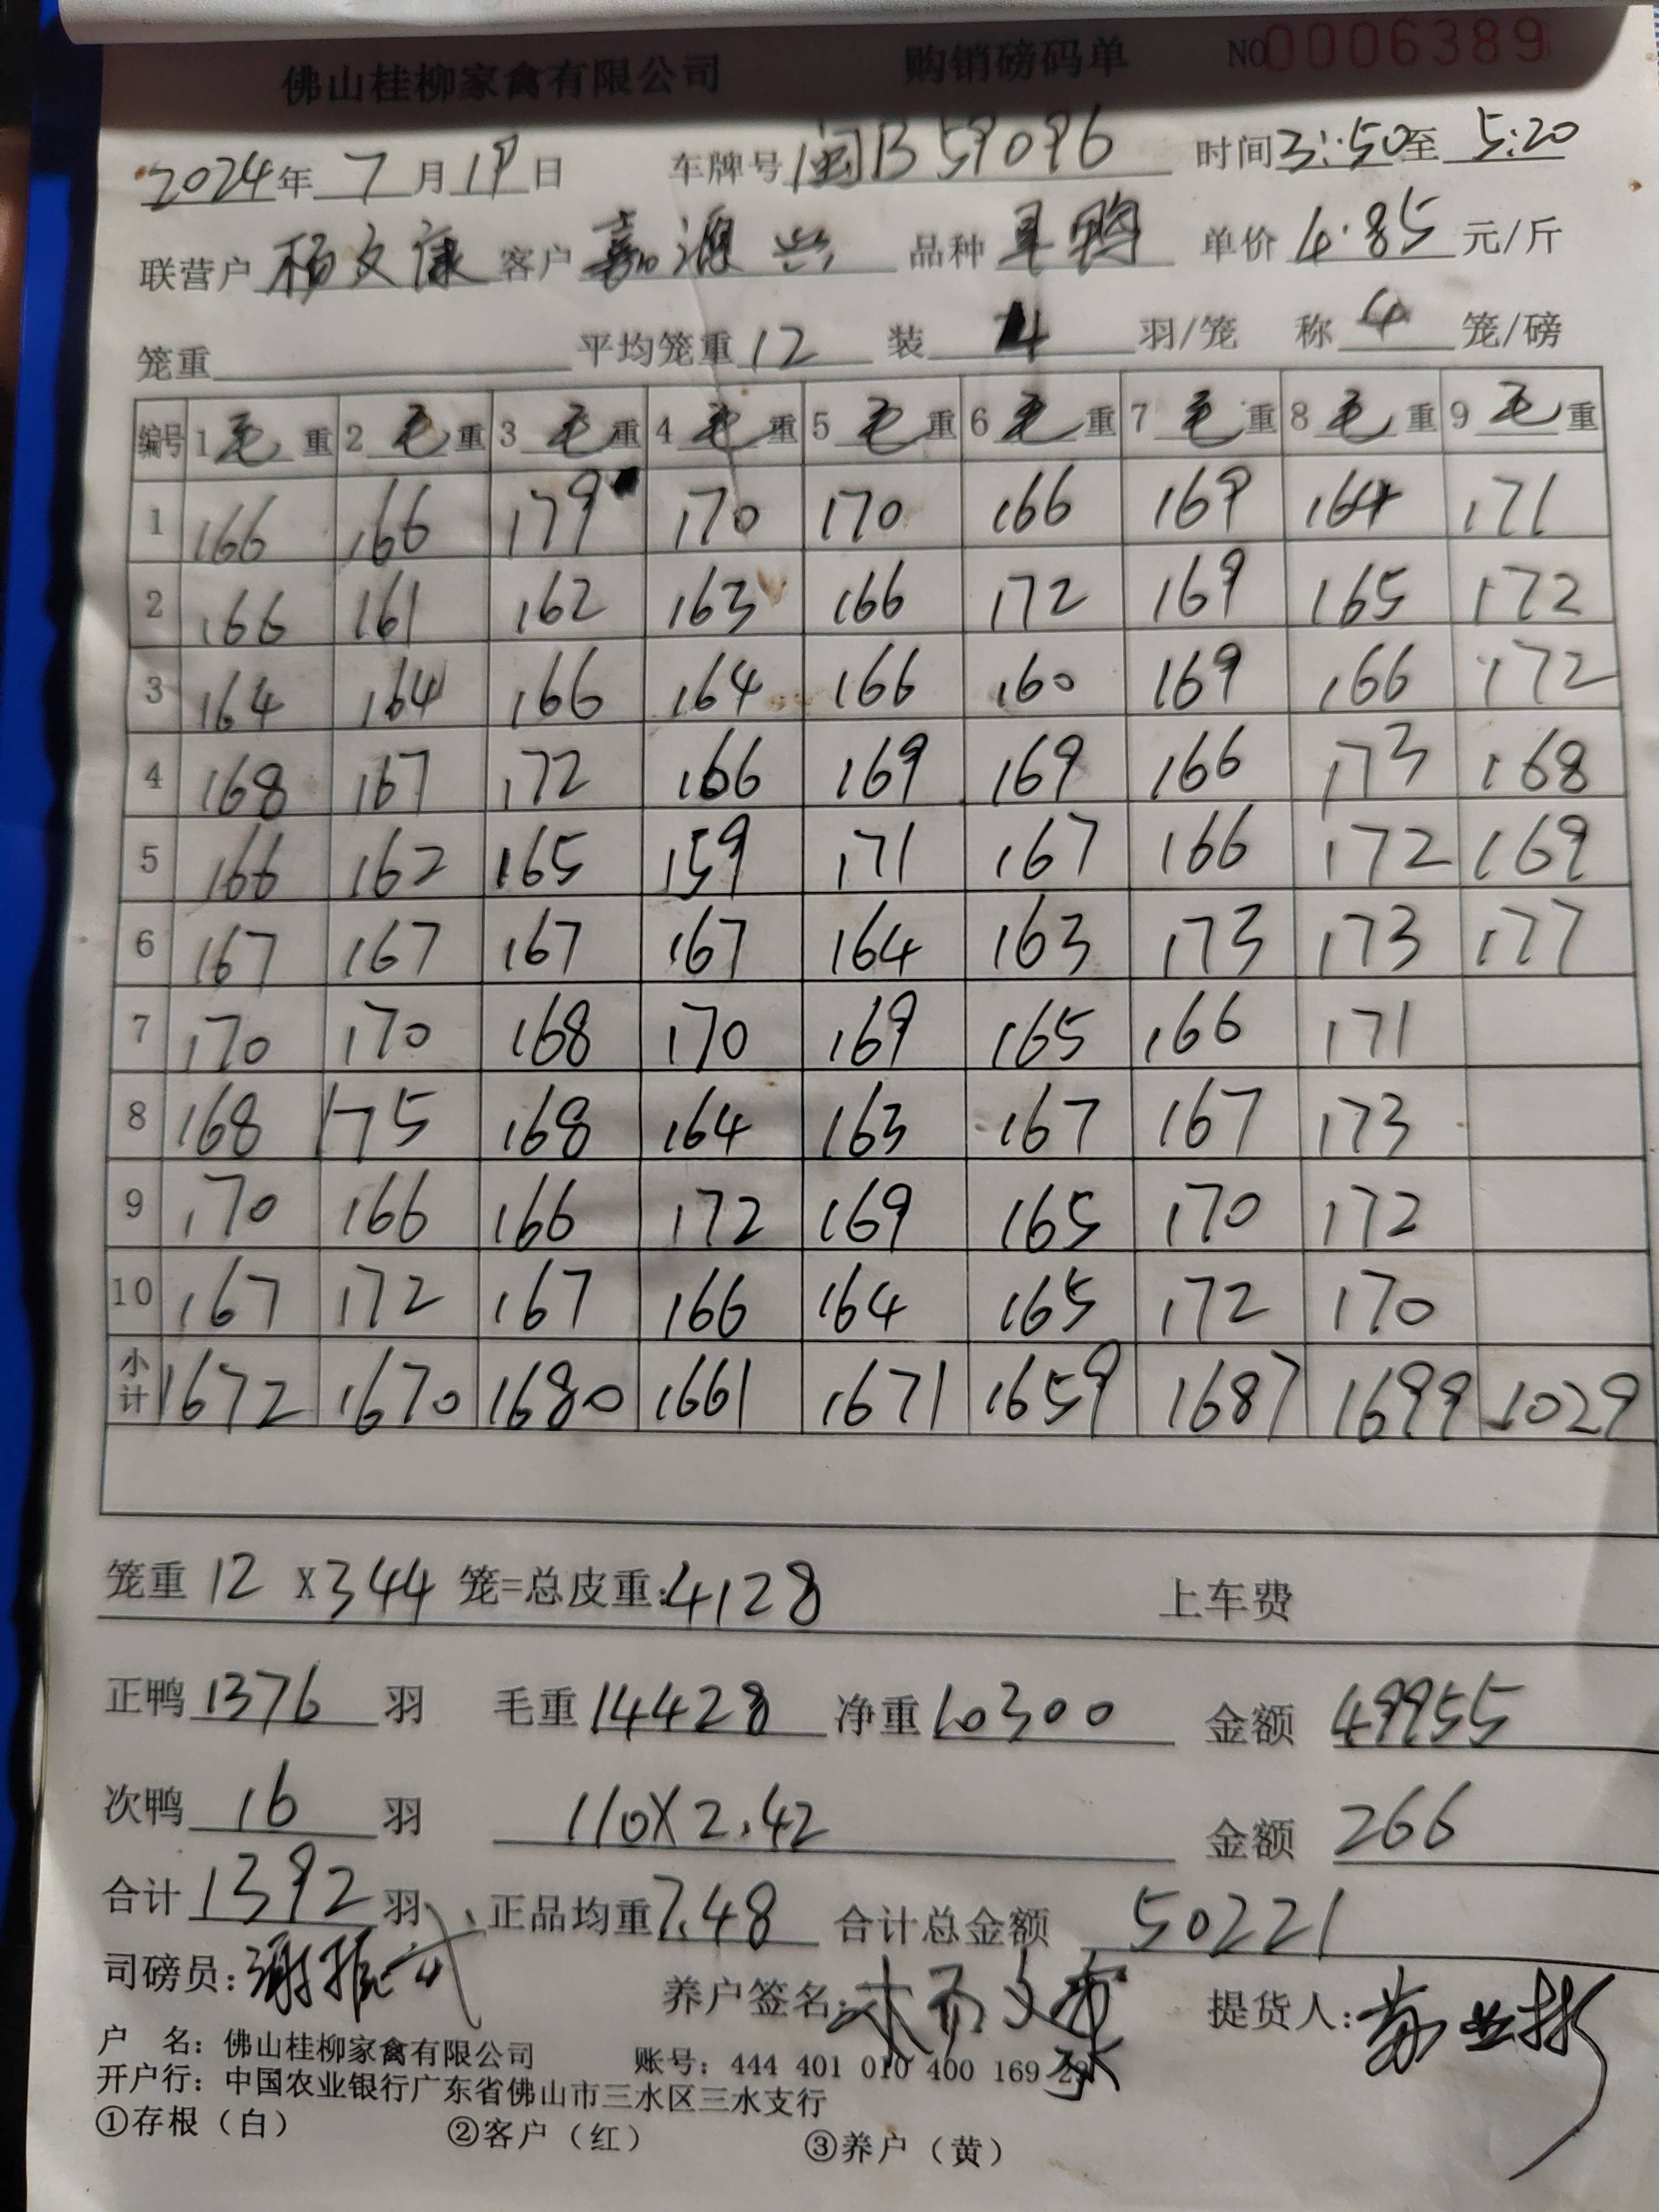 佛山桂柳家禽有限公司 购销磅码单 NO 0006389
2024年 7月 19日 车牌号 闽B59096 时间 3:50至 5:20
联营户 杨文康 客户 嘉源兴 品种 旱鸭 单价 4.85 元/斤
笼重 平均笼重 12 装 4 羽/笼 称 4 笼/磅
编号 1 毛重 2 毛重 3 毛重 4 毛重 5 毛重 6 毛重 7 毛重 8 毛重 9 毛重
1 166 166 179 170 170 166 169 164 171
2 166 161 162 163 166 172 169 165 172
3 164 164 166 164 166 160 169 166 172
4 168 167 172 166 169 169 166 173 168
5 166 162 165 159 171 167 166 172 169
6 167 167 167 167 164 163 173 173 177
7 170 170 168 170 169 165 166 171
8 168 175 168 164 163 167 167 173
9 170 166 166 172 169 165 170 172
10 167 172 167 166 164 165 172 170
小计 1672 1670 1680 1661 1671 1659 1687 1699 1029
笼重 12 X 344 笼=总皮重:4128 上车费
正鸭 1376 羽 毛重 14428 净重 10300 金额 49955
次鸭 16 羽 110X2.42 金额 266
合计 1392 羽 正品均重 7.48 合计总金额 50221
司磅员: 谢振武 养户签名: 提货人:
户 名: 佛山桂柳家禽有限公司 账号: 444 401 010 400 169
开户行: 中国农业银行广东省佛山市三水区三水支行
①存根（白） ②客户（红） ③养户（黄）